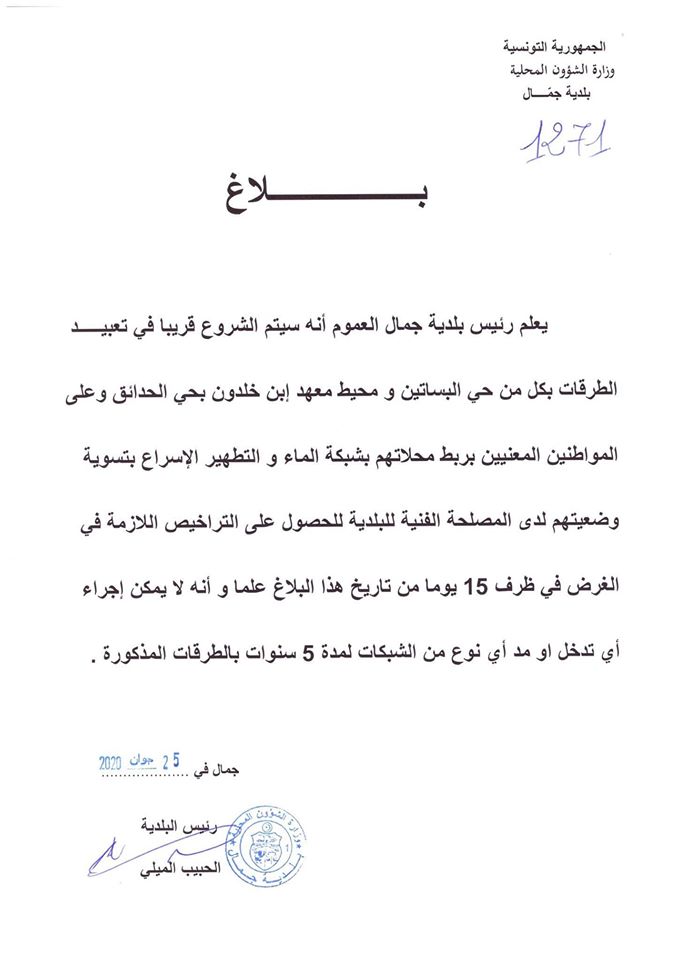 الجمهورية التونسية
وزارة الشؤون المحلية
بلدية جمّـــال
1271
بـــــــــــــــــلاغ
يعلم رئيس بلدية جمال العموم أنه سيتم الشروع قريبا في تعبيـــد
الطرقات بكل من حي البساتين و محيط معهد إبن خلدون بحي الحدائق وعلى
المواطنين المعنيين بربط محلاتهم بشبكة الماء و التطهير الإسراع بتسوية
وضعيتهم لدى المصلحة الفنية للبلدية للحصول على التراخيص اللازمة في
الغرض في ظرف 15 يوما من تاريخ هذا البلاغ علما و أنه لا يمكن إجراء
أي تدخل او مد أي نوع من الشبكات لمدة 5 سنوات بالطرقات المذكورة .
جمال في 25 جوان 2020
رئيس البلدية
الحبيب الميلي
وزارة الشؤون المحلية
بلدية جمال